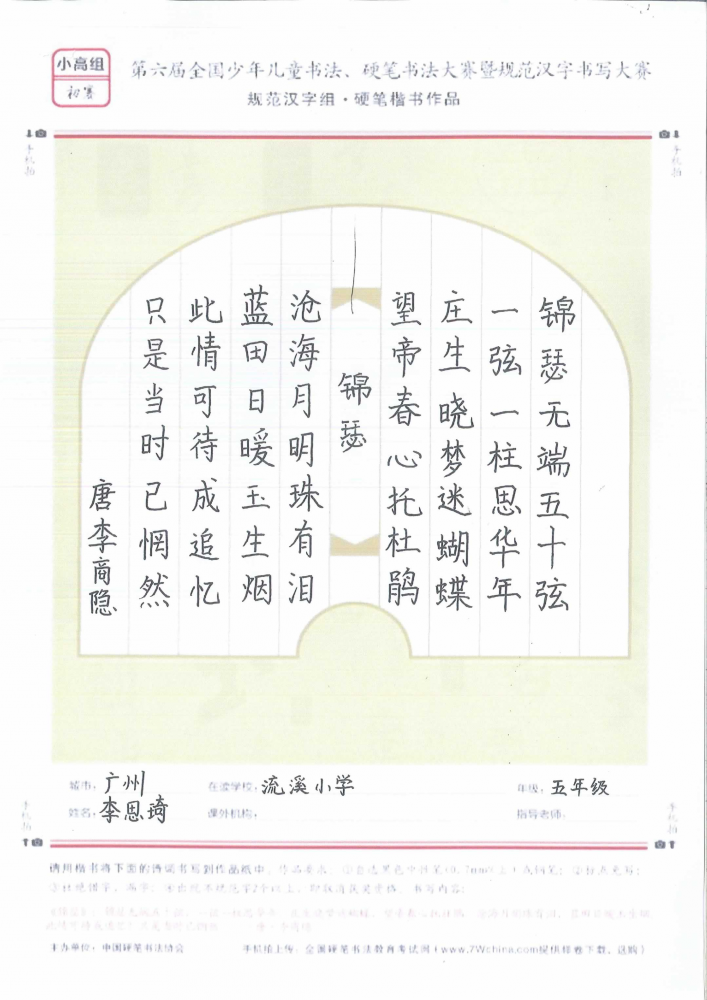 小高组
初赛
第六届全国少年儿童书法、硬笔书法大赛暨规范汉字书写大赛
规范汉字组·硬笔楷书作品
手机拍
手机拍
锦瑟无端五十弦
一弦一柱思华年
庄生晓梦迷蝴蝶
望帝春心托杜鹃
锦瑟
沧海月明珠有泪
蓝田日暖玉生烟
此情可待成追忆
只是当时已惘然
唐李商隐
城市：广州
在读学校：流溪小学
年级：五年级
姓名：李恩琦
课外机构：
指导老师：
手机拍
手机拍
请用楷书将下面的诗词书写到作品纸中，作品要求：
书写内容：
主办单位：中国硬笔书法协会
手机拍上传：全国硬笔书法教育考试网（www.7Wchina.com提供样卷下载、选购）